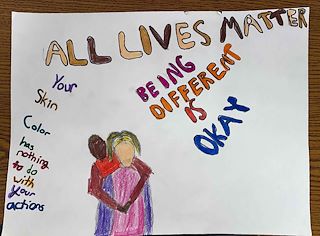 ALL LIVES MATTER
BEING
DIFFERENT
IS
OKAY
Your
Skin
Color
has
nothing
to do
with
your
actions